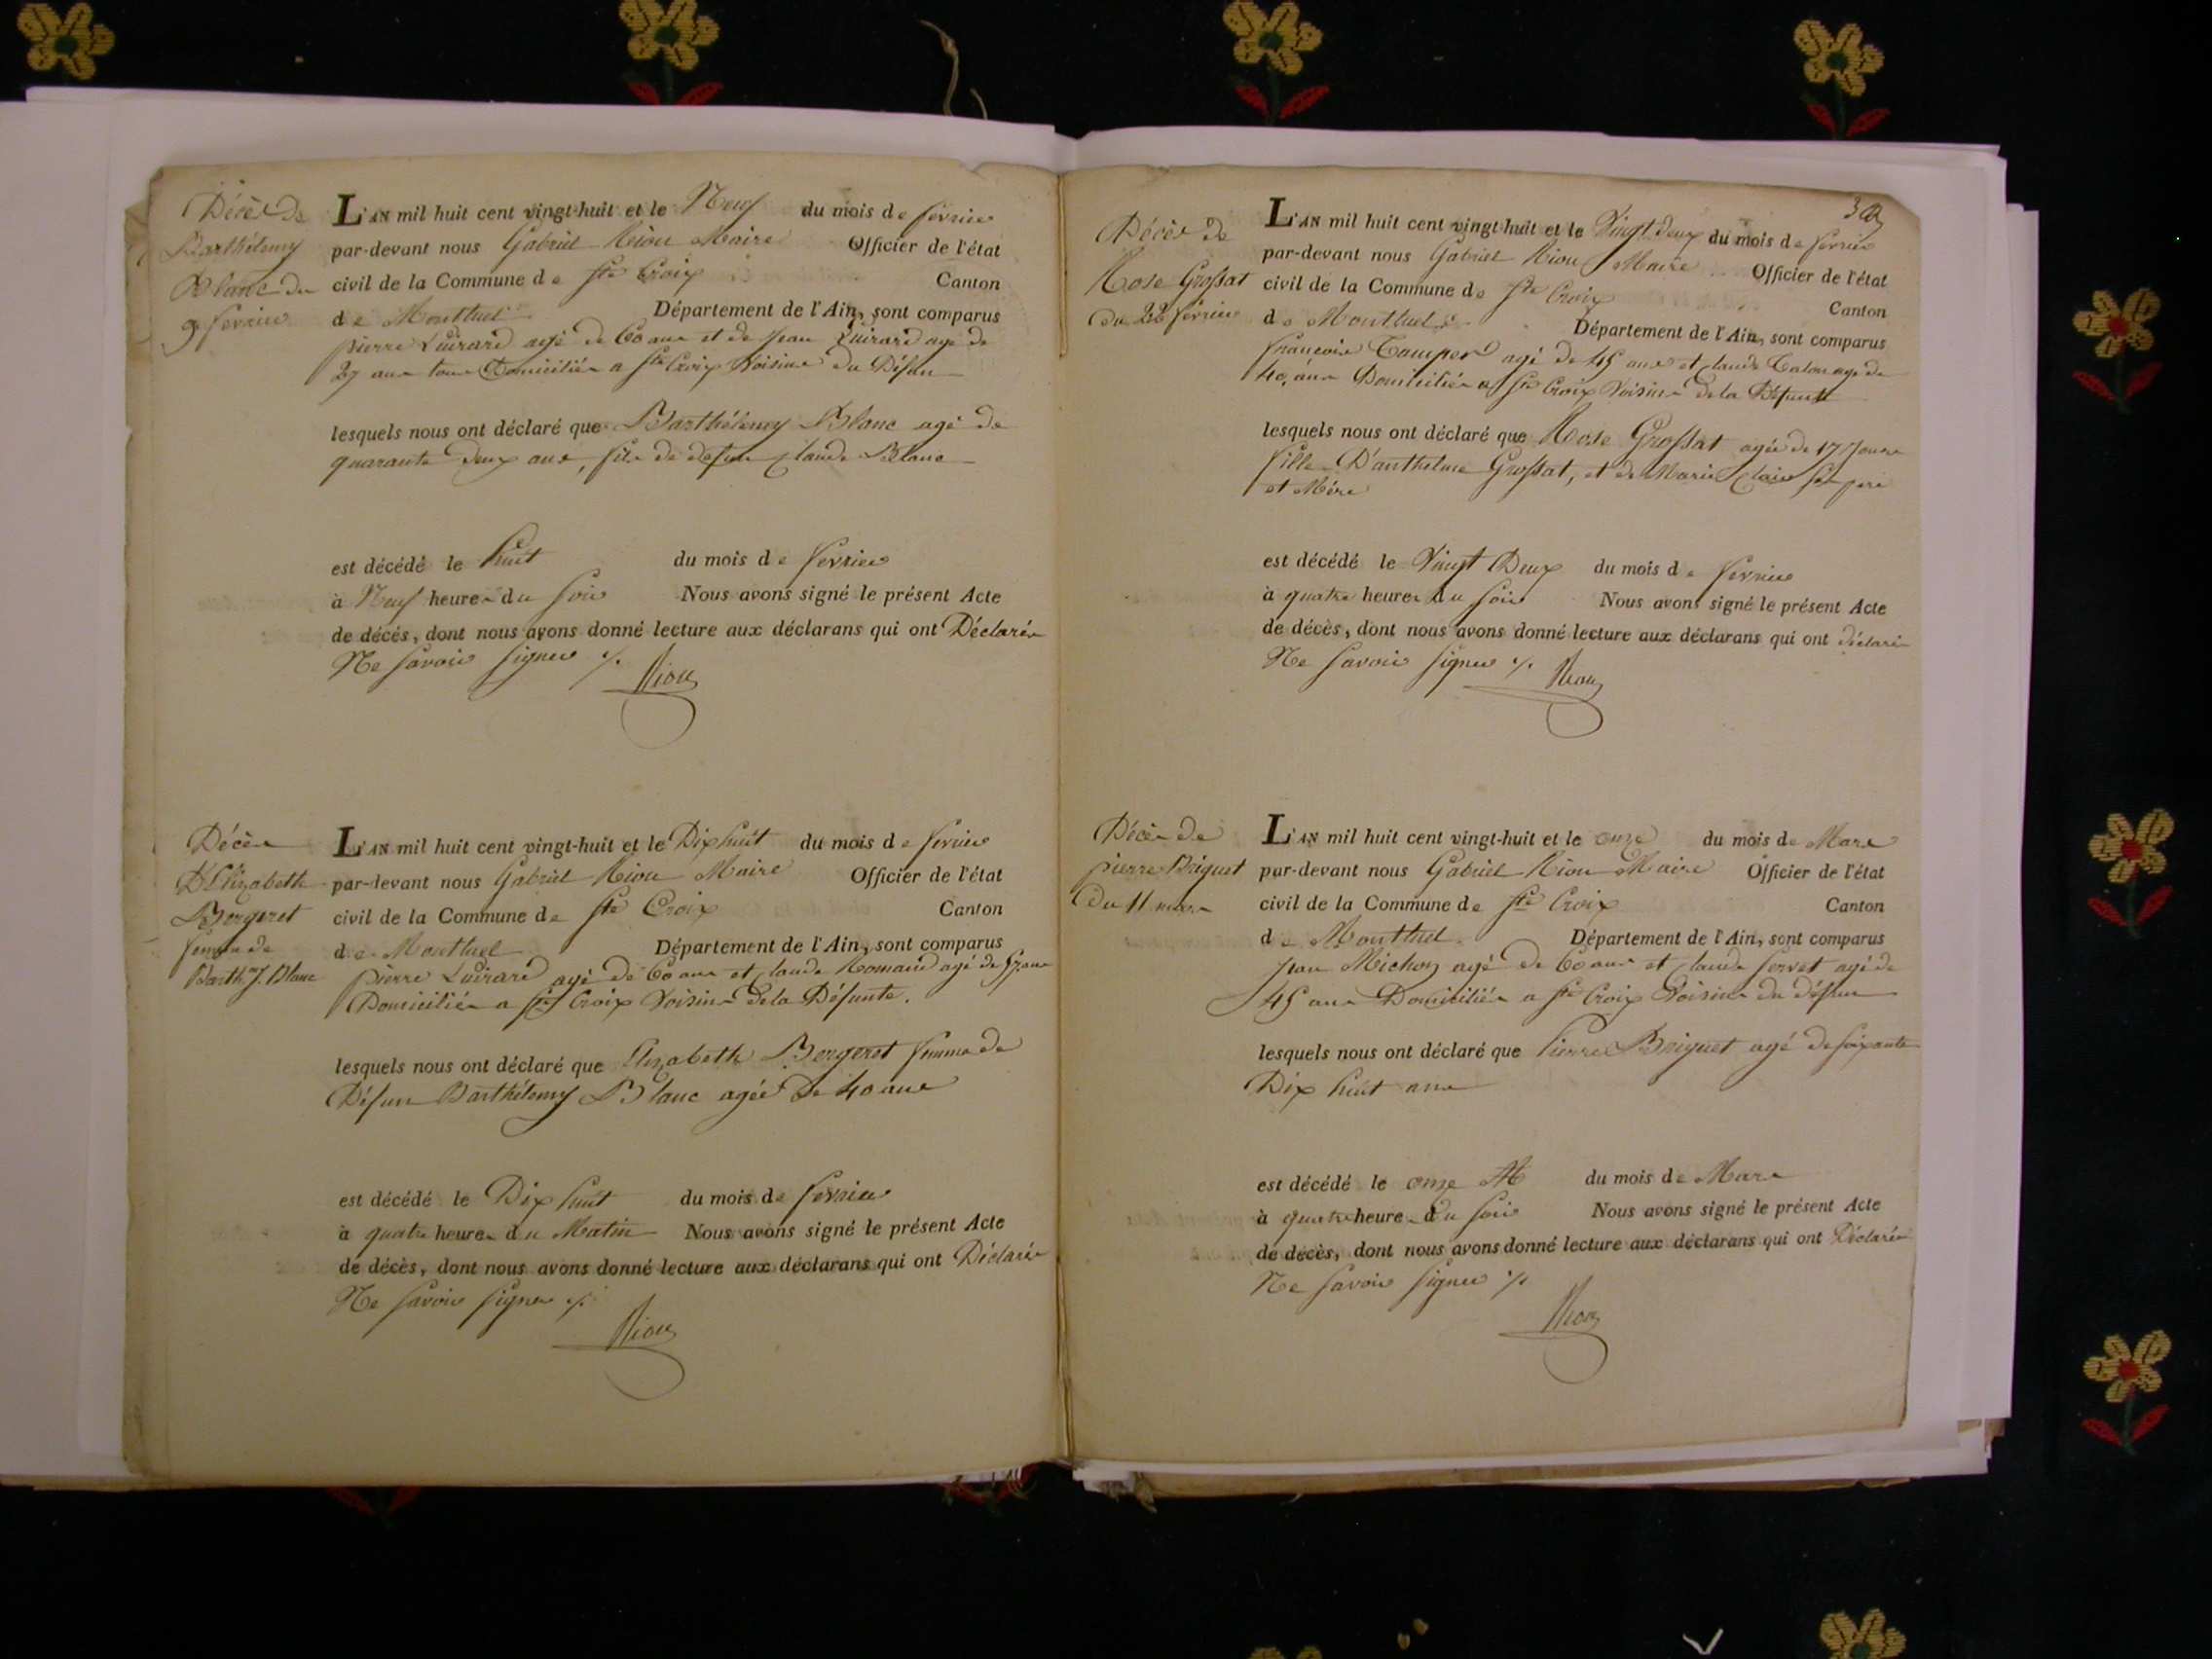 Décès de
Barthélemy
Blanc du
9 fevrier
L'AN mil huit cent vingt-huit et le Neuf du mois de fevrier
par-devant nous Gabriel Riou Maire Officier de l'état
civil de la Commune de Ste Croix Canton
de Montluel Département de l'Ain, sont comparus
pierre Luirard agé de 60 ans et de jean Luirard age de
27 ans tous Domiciliés a Ste Croix Voisins du Défun
lesquels nous ont déclaré que Barthélemy Blanc agé de
quarante deux ans, fils de defun Claude Blanc
est décédé le huit du mois de fevrier
à Neuf heures du soir Nous avons signé le présent Acte
de décès, dont nous avons donné lecture aux déclarans qui ont Déclarés
Ne savoir signer ./.
Riou
Décès
D'Elizabeth
Bergeret
femme de
Barth.y Blanc
L'AN mil huit cent vingt-huit et le Dix huit du mois de fevrier
par-devant nous Gabriel Riou Maire Officier de l'état
civil de la Commune de Ste Croix Canton
de Montluel Département de l'Ain, sont comparus
pierre Luirard agé de 60 ans et Claude Romand agé de ans
Domiciliés a Ste Croix Voisins de la Défunte.
lesquels nous ont déclaré que Elizabeth Bergeret femme de
Défun Barthélemy Blanc agée de 40 ans
est décédé le Dix huit du mois de fevrier
à quatre heures du Matin Nous avons signé le présent Acte
de décès, dont nous avons donné lecture aux déclarans qui ont Déclarés
Ne savoir signer ./.
Riou
Décès de
Rose Grossat
du 22 fevrier
L'AN mil huit cent vingt-huit et le Vingt deux du mois de fevrier
par-devant nous Gabriel Riou Maire Officier de l'état
civil de la Commune de Ste Croix Canton
de Montluel Département de l'Ain, sont comparus
francois agé de 45 ans et Claude age de
40 ans Domiciliés a Ste Croix Voisins de la Défunte
lesquels nous ont déclaré que Rose Grossat agée de 17 Jours
fille D'anthelme Grossat, et de Marie Claire ses pere
et Mère
est décédé le Vingt Deux du mois de fevrier
à quatre heures du soir Nous avons signé le présent Acte
de décès, dont nous avons donné lecture aux déclarans qui ont déclarés
Ne savoir signer ./.
Riou
Décès de
pierre Briguet
Du 11 mars
L'AN mil huit cent vingt-huit et le onze du mois de Mars
par-devant nous Gabriel Riou Maire Officier de l'état
civil de la Commune de Ste Croix Canton
de Montluel Département de l'Ain, sont comparus
Jean Michon agé de 60 ans et Claude servet agé de
45 ans Domiciliés a Ste Croix Voisins du défun
lesquels nous ont déclaré que Pierre Briguet agé de soixante
Dix huit ans
est décédé le onze du mois de Mars
à quatre heures du soir Nous avons signé le présent Acte
de décès, dont nous avons donné lecture aux déclarans qui ont Déclarés
Ne savoir signer ./.
Riou